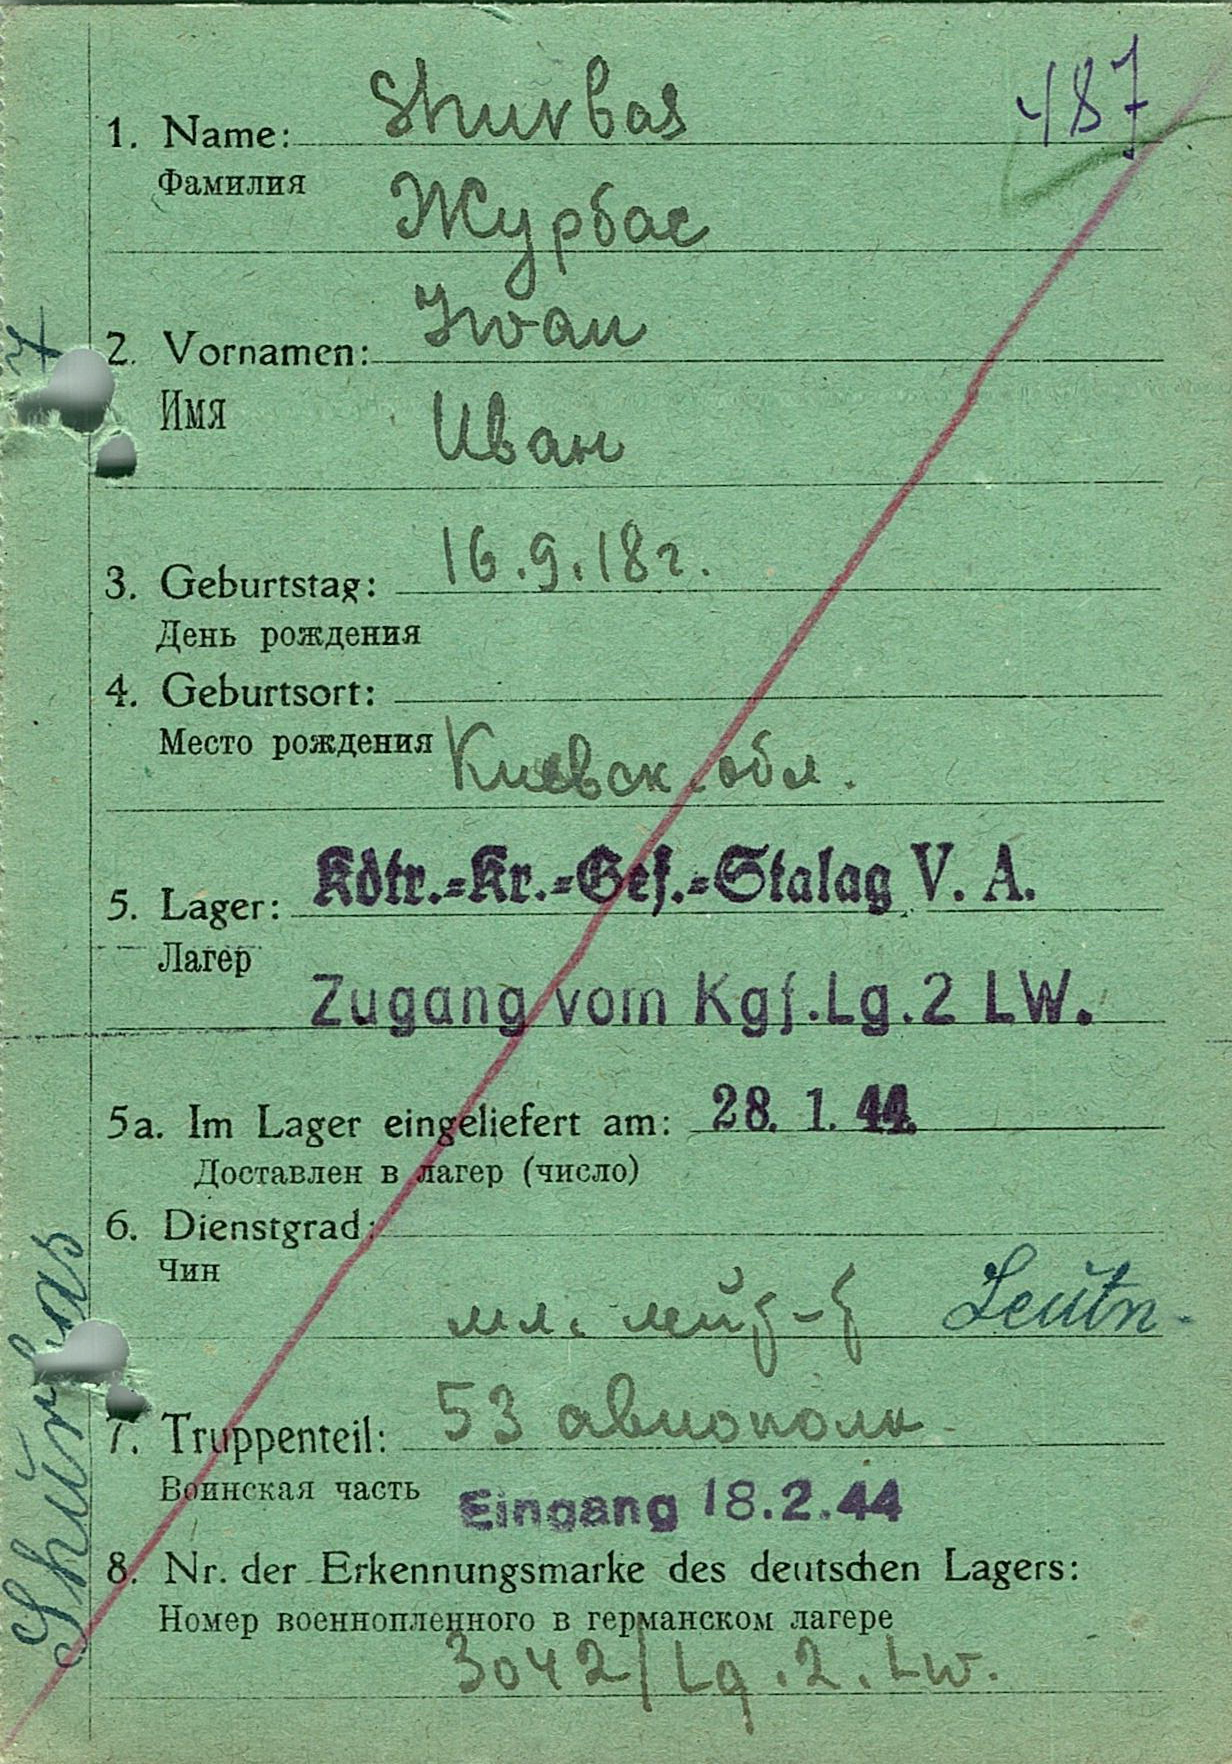 487
1. Name: Shurbas
Фамилия
Журбас
2. Vornamen: Iwan
Имя
Иван
3. Geburtstag: 16.9.18г.
День рождения
4. Geburtsort:
Место рождения Киевск. обл.
5. Lager: Kdtr.=Kr.=Gef.=Stalag V. A.
Лагер
Zugang vom Kgf.Lg.2 LW.
5a. Im Lager eingeliefert am: 28. 1. 44.
Доставлен в лагер (число)
6. Dienstgrad:
Чин
мл. лейт-т Leutn.
7. Truppenteil: 53 авиополк
Воинская часть
Eingang 18.2.44
8. Nr. der Erkennungsmarke des deutschen Lagers:
Номер военнопленного в германском лагере
3042/Lg.2.Lw.
Shurbas